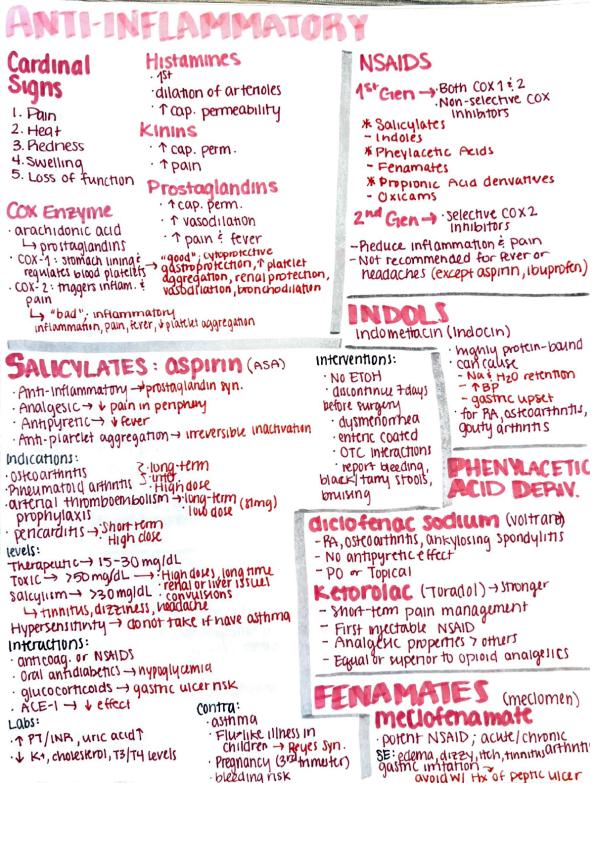 ANTI-INFLAMMATORY
Cardinal
Signs
1. Pain
2. Heat
3. Redness
4. Swelling
5. Loss of function
Histamines
· 1st
· dilation of arterioles
· ↑ cap. permeability
Kinins
· ↑ cap. perm.
· ↑ pain
Prostaglandins
· ↑ cap. perm.
· ↑ vasodilation
· ↑ pain & fever
COX Enzyme
· arachidonic acid
↳ prostaglandins
· COX-1: stomach lining &
regulates blood platelets → "good"; cytoprotective
gastroprotection, ↑ platelet
aggregation, renal protection,
vasodilation, bronchodilation
· COX-2: triggers inflam. &
pain
↳ "bad"; inflammatory
inflammation, pain, fever, ↓ platelet aggregation
NSAIDS
1st Gen → · Both COX 1 & 2
· Non-selective COX
inhibitors
* Salicylates
- Indoles
* Pheylacetic Acids
- Fenamates
* Propionic Acid derivatives
- Oxicams
2nd Gen → · selective COX2
inhibitors
- Reduce inflammation & pain
- Not recommended for fever or
headaches (except aspirin, ibuprofen)
INDOLS
indomethacin (Indocin)
· highly protein-bound
· can cause
- Na & H2O retention
- ↑ BP
- gastric upset
· for RA, osteoarthritis,
gouty arthritis
SALICYLATES: aspirin (ASA)
· Anti-inflammatory → ↓prostaglandin syn.
· Analgesic → ↓ pain in periphery
· Antipyretic → ↓ fever
· Anti-platelet aggregation → irreversible inactivation
Indications:
· osteoarthritis
· Rheumatoid arthritis
· long-term
High dose
· arterial thromboembolism → long-term (81mg)
prophylaxis low dose
· pericarditis → short term
High dose
levels:
Therapeutic → 15-30 mg/dL
Toxic → >50 mg/dL → · High doses, long time
· renal or liver issues
Salicylism → >30 mg/dL · convulsions
↳ tinnitus, dizziness, headache
Hypersensitivity → do not take if have asthma
Interactions:
· anticoag. or NSAIDS
· Oral antidiabetics → hypoglycemia
· glucocorticoids → gastric ulcer risk
· ACE-I → ↓ effect
Labs:
· ↑ PT/INR, uric acid↑
· ↓ K+, cholesterol, T3/T4 levels
Contra:
· asthma
· Flu-like illness in
children → Reyes Syn.
· Pregnancy (3rd trimester)
· bleeding risk
Interventions:
· No ETOH
· discontinue 7 days
before surgery
· dysmenorrhea
· enteric coated
· OTC interactions
· report bleeding,
black/tarry stools,
bruising
PHENYLACETIC
ACID DERIV.
diclofenac sodium (voltaren)
- RA, osteoarthritis, ankylosing spondylitis
- No antipyretic effect
- PO or Topical
Ketorolac (Toradol) → stronger
- Short-term pain management
- First injectable NSAID
- Analgesic properties > others
- Equal or superior to opioid analgesics
FENAMATES (meclomen)
meclofenamate
· potent NSAID; acute/chronic
arthriti
SE: edema, dizzy, itch, tinnitus
gastric irritation →
avoid w/ Hx of peptic ulcer